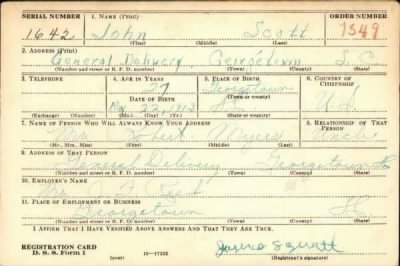 SERIAL NUMBER 1. NAME (Print) ORDER NUMBER
1642 John Scott 1549
(First) (Middle) (Last)
2. ADDRESS (Print)
General Delivery, Georgetown S.C.
(Number and street or R. F. D. number) (Town) (County) (State)
3. TELEPHONE 4. AGE IN YEARS 5. PLACE OF BIRTH 6. COUNTRY OF CITIZENSHIP
27 Georgetown
DATE OF BIRTH (Town or county)
22, 1913 U.S.
(Exchange) (Number) (Mo.) (Day) (Yr.) (State or country)
7. NAME OF PERSON WHO WILL ALWAYS KNOW YOUR ADDRESS 8. RELATIONSHIP OF THAT PERSON
Myers Uncle
(Mr., Mrs., Miss) (First) (Middle) (Last)
9. ADDRESS OF THAT PERSON
General Delivery Georgetown
(Number and street or R. F. D. number) (Town) (County) (State)
10. EMPLOYER'S NAME
11. PLACE OF EMPLOYMENT OR BUSINESS
Georgetown
(Number and street or R. F. D. number) (Town) (County) (State)
I AFFIRM THAT I HAVE VERIFIED ABOVE ANSWERS AND THAT THEY ARE TRUE.
REGISTRATION CARD
D. S. S. Form 1 (over) 16—17105 (Registrant's signature)